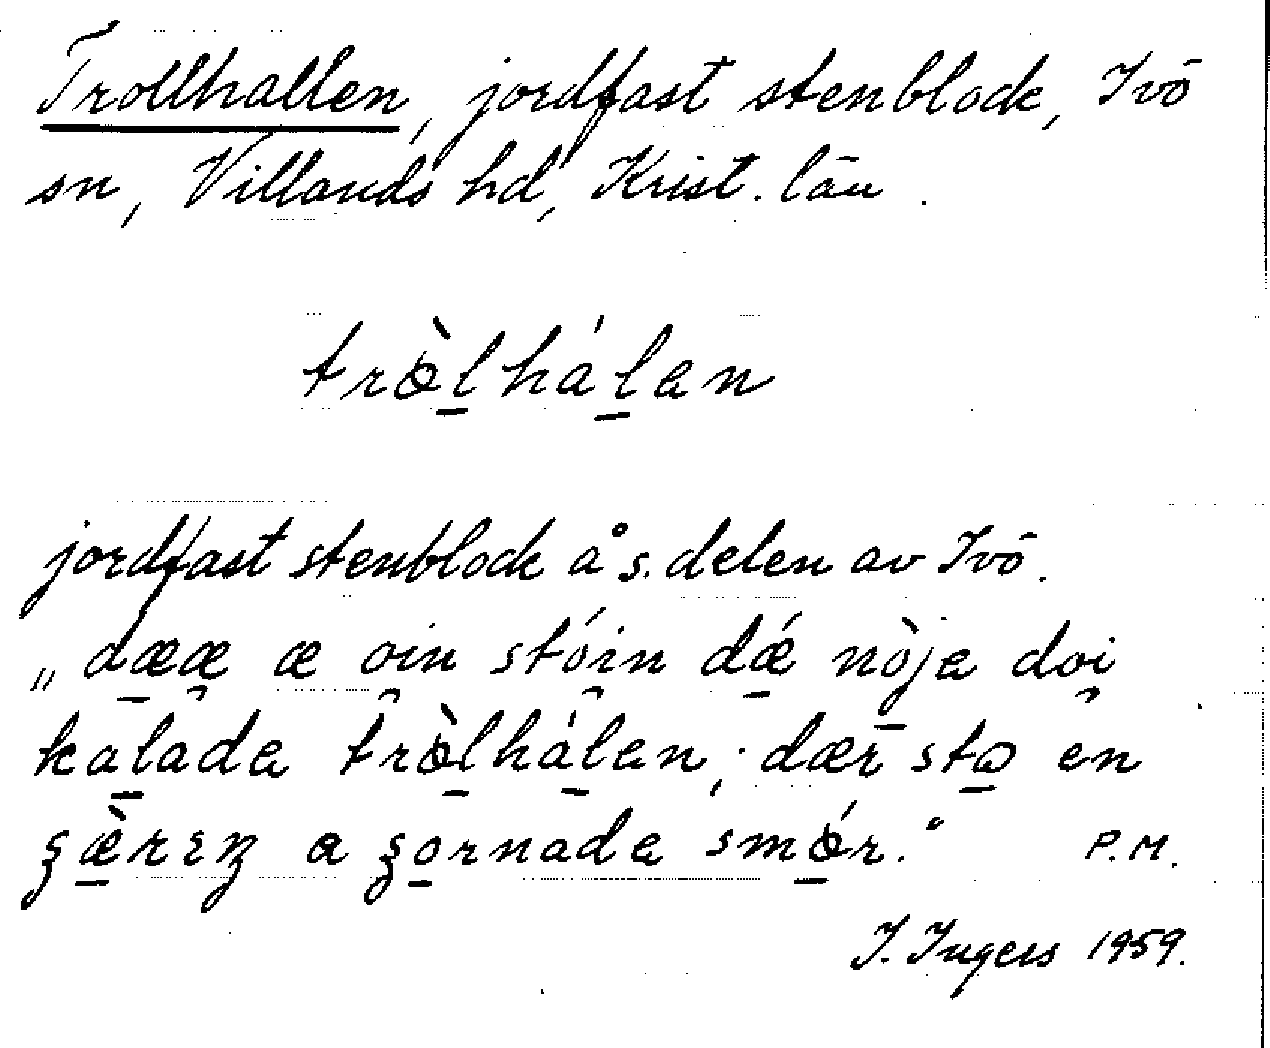 Trollhallen, jordfast stenblock, Ivö
sn, Villands hd, Krist. län.
trɵ̀l̲há l̲an
jordfast stenblock å s. delen av Ivö.
„dæ̲æ̨ æ ǫin stóįn dǽ̲ nò̲ja doį
kal̲ada trɵ̀l̲hál̲en; dær sto̲ en
ʒæ̲̀rɪŋ a ʒo̲rnada smɵ̲́r.“ P.M.
I. Ingers 1959.